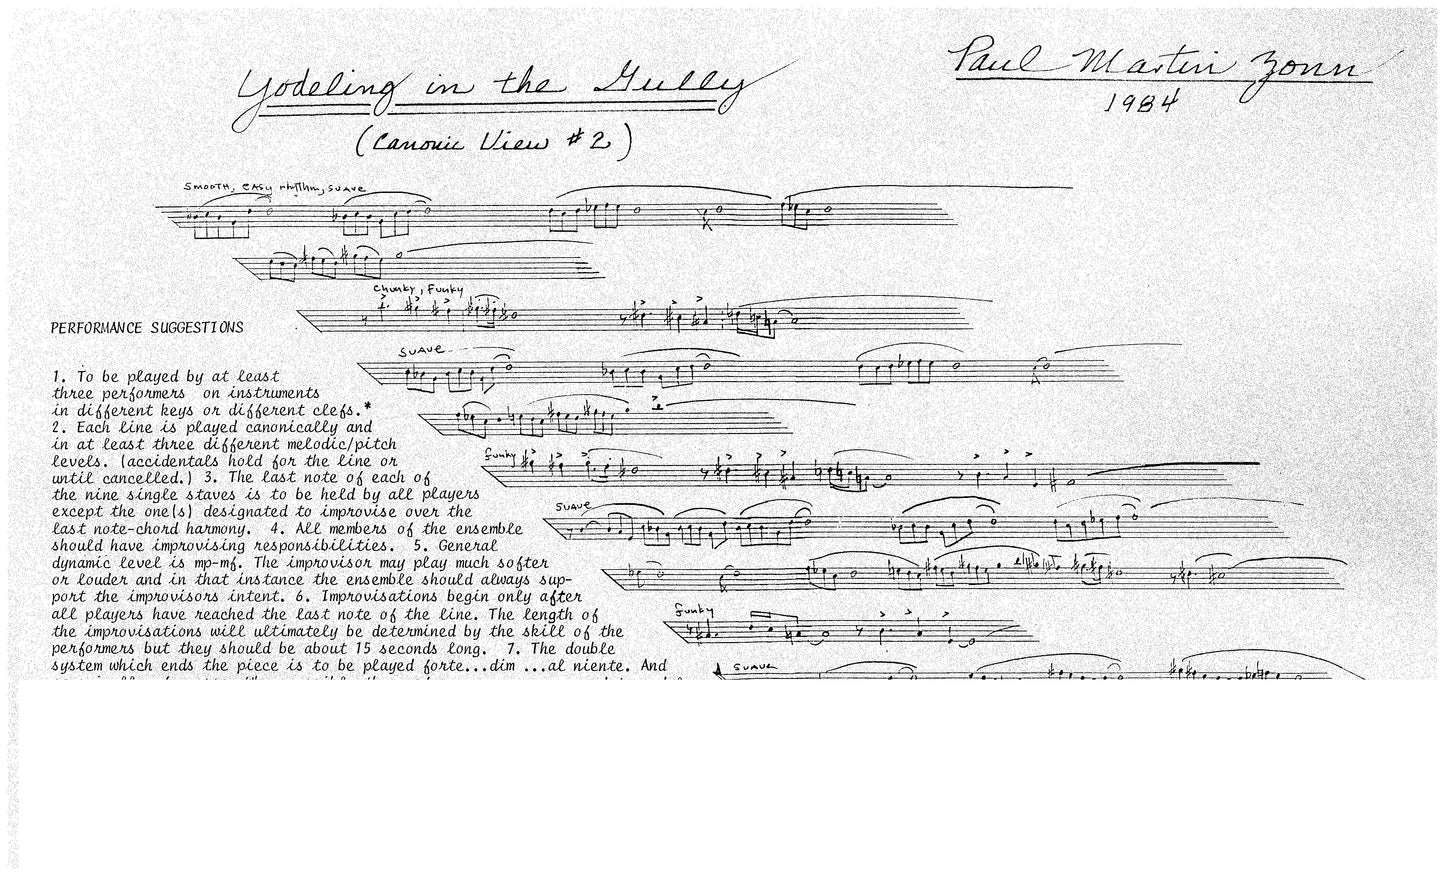 Yodeling in the Gully
(Canonic View #2)
Paul Martin Zonn
1984
Smooth, easy rhythm, suave
Chunky, Funky
PERFORMANCE SUGGESTIONS
Suave
1. To be played by at least
three performers on instruments
in different keys or different clefs.*
2. Each line is played canonically and
in at least three different melodic/pitch
levels. (accidentals hold for the line or
until cancelled.) 3. The last note of each of
the nine single staves is to be held by all players
except the one(s) designated to improvise over the
last note-chord harmony. 4. All members of the ensemble
should have improvising responsibilities. 5. General
dynamic level is mp-mf. The improvisor may play much softer
or louder and in that instance the ensemble should always sup-
port the improvisors intent. 6. Improvisations begin only after
all players have reached the last note of the line. The length of
the improvisations will ultimately be determined by the skill of the
performers but they should be about 15 seconds long. 7. The double
system which ends the piece is to be played forte...dim ...al niente. And
funky
suave
funky
suave